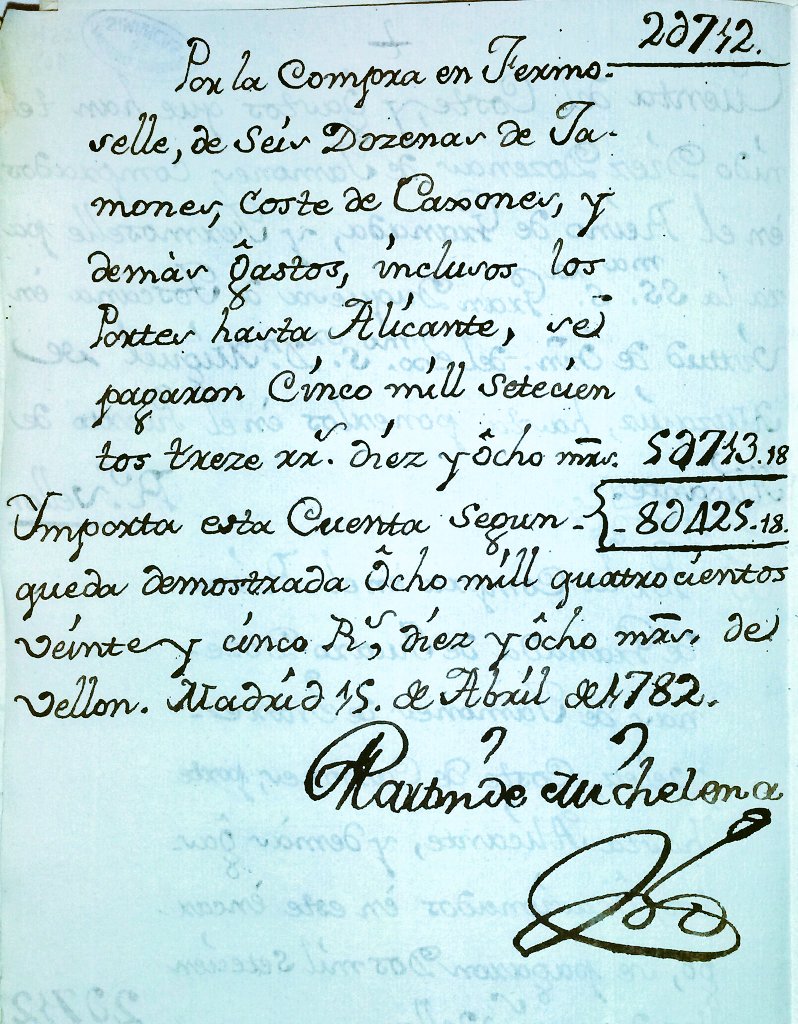 2∂712.
Por la Compra en Fermo-
selle, de Séis Dozenas de Ja-
mones, coste de Caxones, y
demàs gâstos, inclusos los
Portes hasta Alicante, se
pagaron Cinco mill setecien
tos treze rrˢ. diez y ôcho mrs. 5∂713.18
Ymporta esta Cuenta segun - 8∂425.18.
queda demostrada Ôcho mill quatrocientos
veinte y cinco Rˢ, diez y ôcho mrs. de
vellon. Madrid 15. de Abril de 1782.
Martin de Michelena